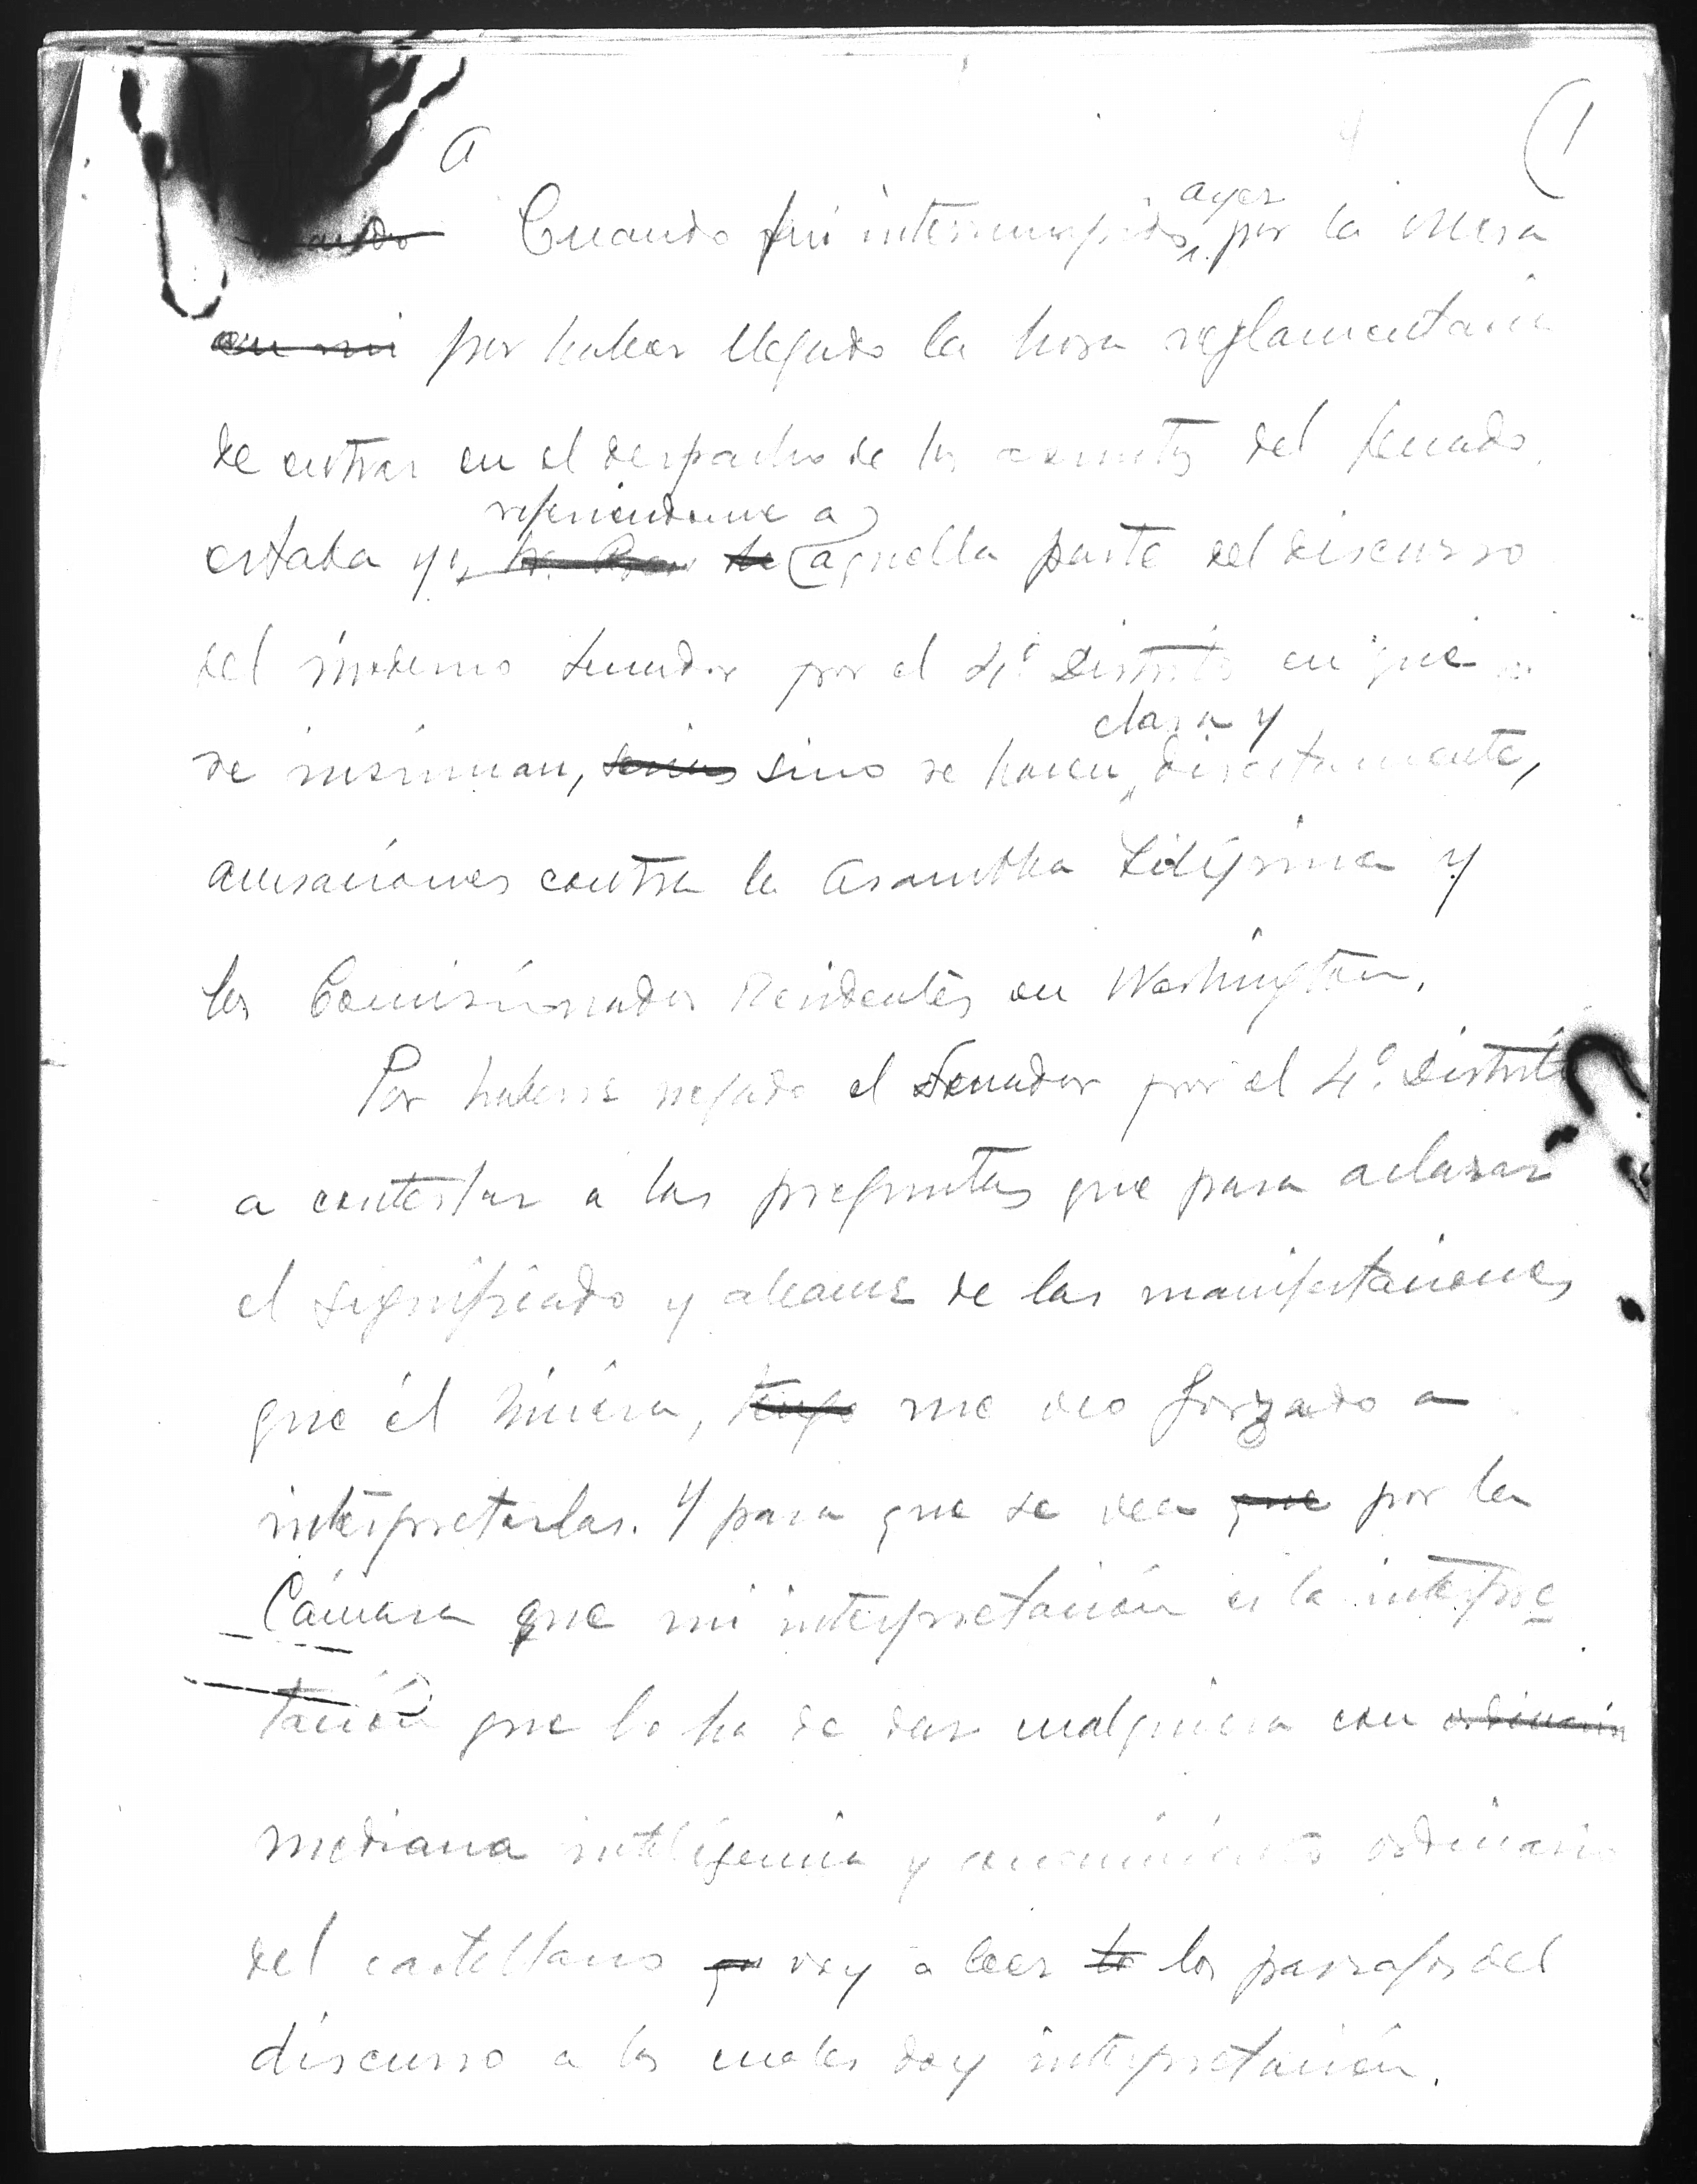 a
(1
ayer
Cuando fui interrumpido por la Mesa
en mi por haber llegado la hora reglamentaria
de entrar en el despacho de los asuntos del Senado,
refiriendome a
estaba yo aquella parte del discurso
del moderno Senador por el 4º Distrito en que no
clara y
se insinuan, sino se hacen directamente,
acusaciones contra la Asamblea Filipina y
los Comisionados Residentes en Washington.
Por haberse negado el Senador por el 4º Distrito
a contestar a las preguntas que para aclarar
el significado y alcance de las manifestaciones
que él hiciera, tengo me veo forzado a
interpretarlas. Y para que se vea que por la
Cámara que mi interpretación es la interpre
tación que lo ha de dar cualquiera con ordinaria
mediana inteligencia y conocimiento ordinario
del castellano voy a leer lo los parrafos del
discurso a los cuales doy interpretación.